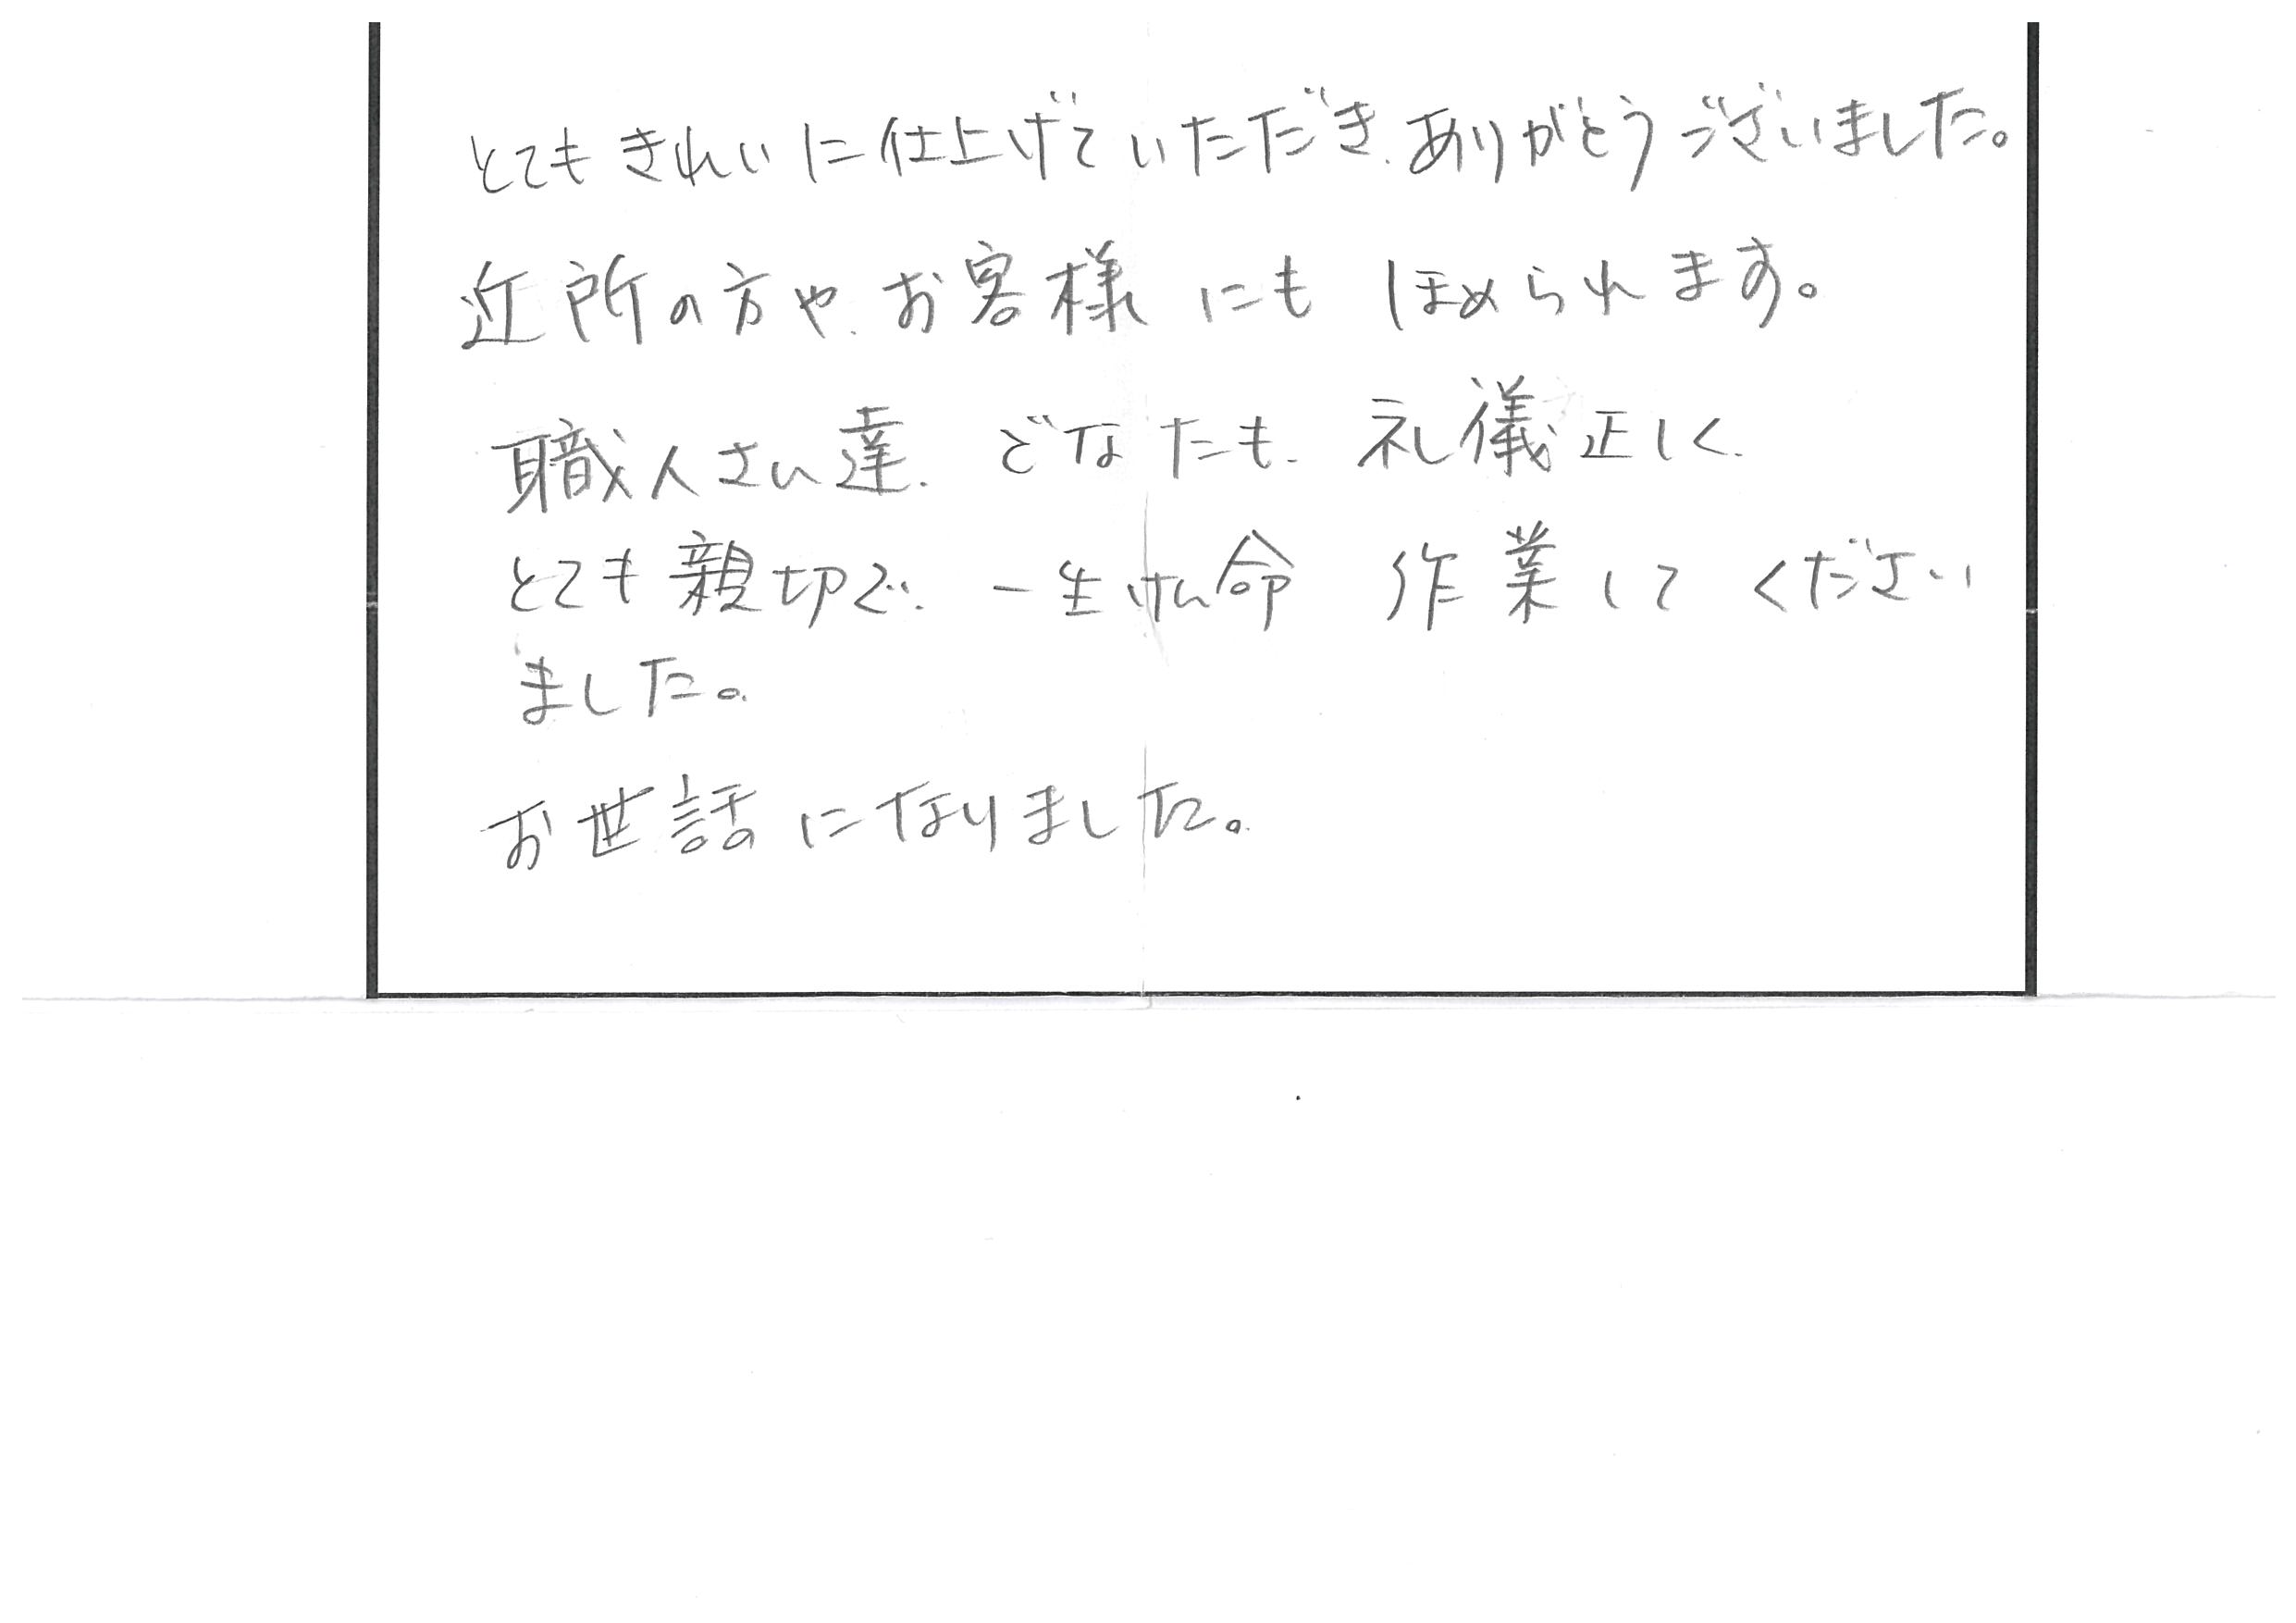 とてもきれいに仕上げていただき、ありがとうございました。
近所の方や、お客様にも ほめられます。
職人さん達、どなたも、礼儀正しく、
とても親切で、一生けん命 作業してください
ました。
お世話になりました。